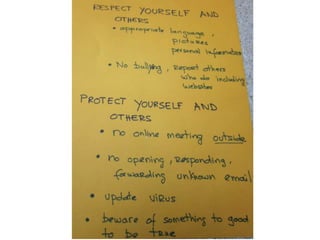 RESPECT YOURSELF AND
OTHERS
• appropriate language,
pictures
personal information
• No bullying, Report others
who do including
websites
PROTECT YOURSELF AND
OTHERS
• no online meeting outside
• no opening, responding,
forwarding unknown email
• update virus
• beware of something to good
to be true